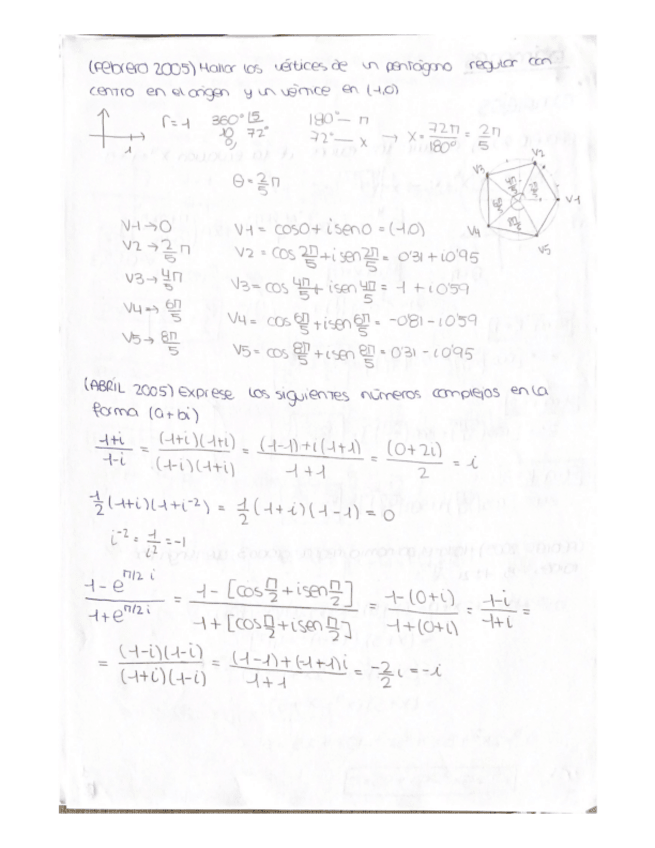 (Febrero 2005) Hallar los vértices de un pentágono regular con
centro en el origen y un vértice en (1,0)
r=1 360° |5 180° — π
10 72° 72° — x → x = 72π/180° = 2π/5
0/
1
θ = 2/5 π
V1 → 0 V1 = cos0 + i sen0 = (1,0)
V2 → 2/5 π V2 = cos 2π/5 + i sen 2π/5 = 0'31 + i0'95
V3 → 4π/5 V3 = cos 4π/5 + i sen 4π/5 = -1 + i0'59
V4 → 6π/5 V4 = cos 6π/5 + i sen 6π/5 = -0'81 - i0'59
V5 → 8π/5 V5 = cos 8π/5 + i sen 8π/5 = 0'31 - i0'95
V2
V3
V1
V4
V5
(ABRIL 2005) Exprese los siguientes números complejos en la
forma (a+bi)
1+i/1-i = (1+i)(1+i)/(1-i)(1+i) = (1-1)+i(1+1)/1+1 = (0+2i)/2 = i
1/2 (1+i)(1+i⁻²) = 1/2 (1+i)(1-1) = 0
i⁻² = 1/i² = -1
1-e^(π/2 i)/1+e^(π/2 i) = 1-[cos π/2 + i sen π/2]/1+[cos π/2 + i sen π/2] = 1-(0+i)/1+(0+i) = 1-i/1+i =
= (1-i)(1-i)/(1+i)(1-i) = (1-1)+(-1-1)i/1+1 = -2/2 i = -i